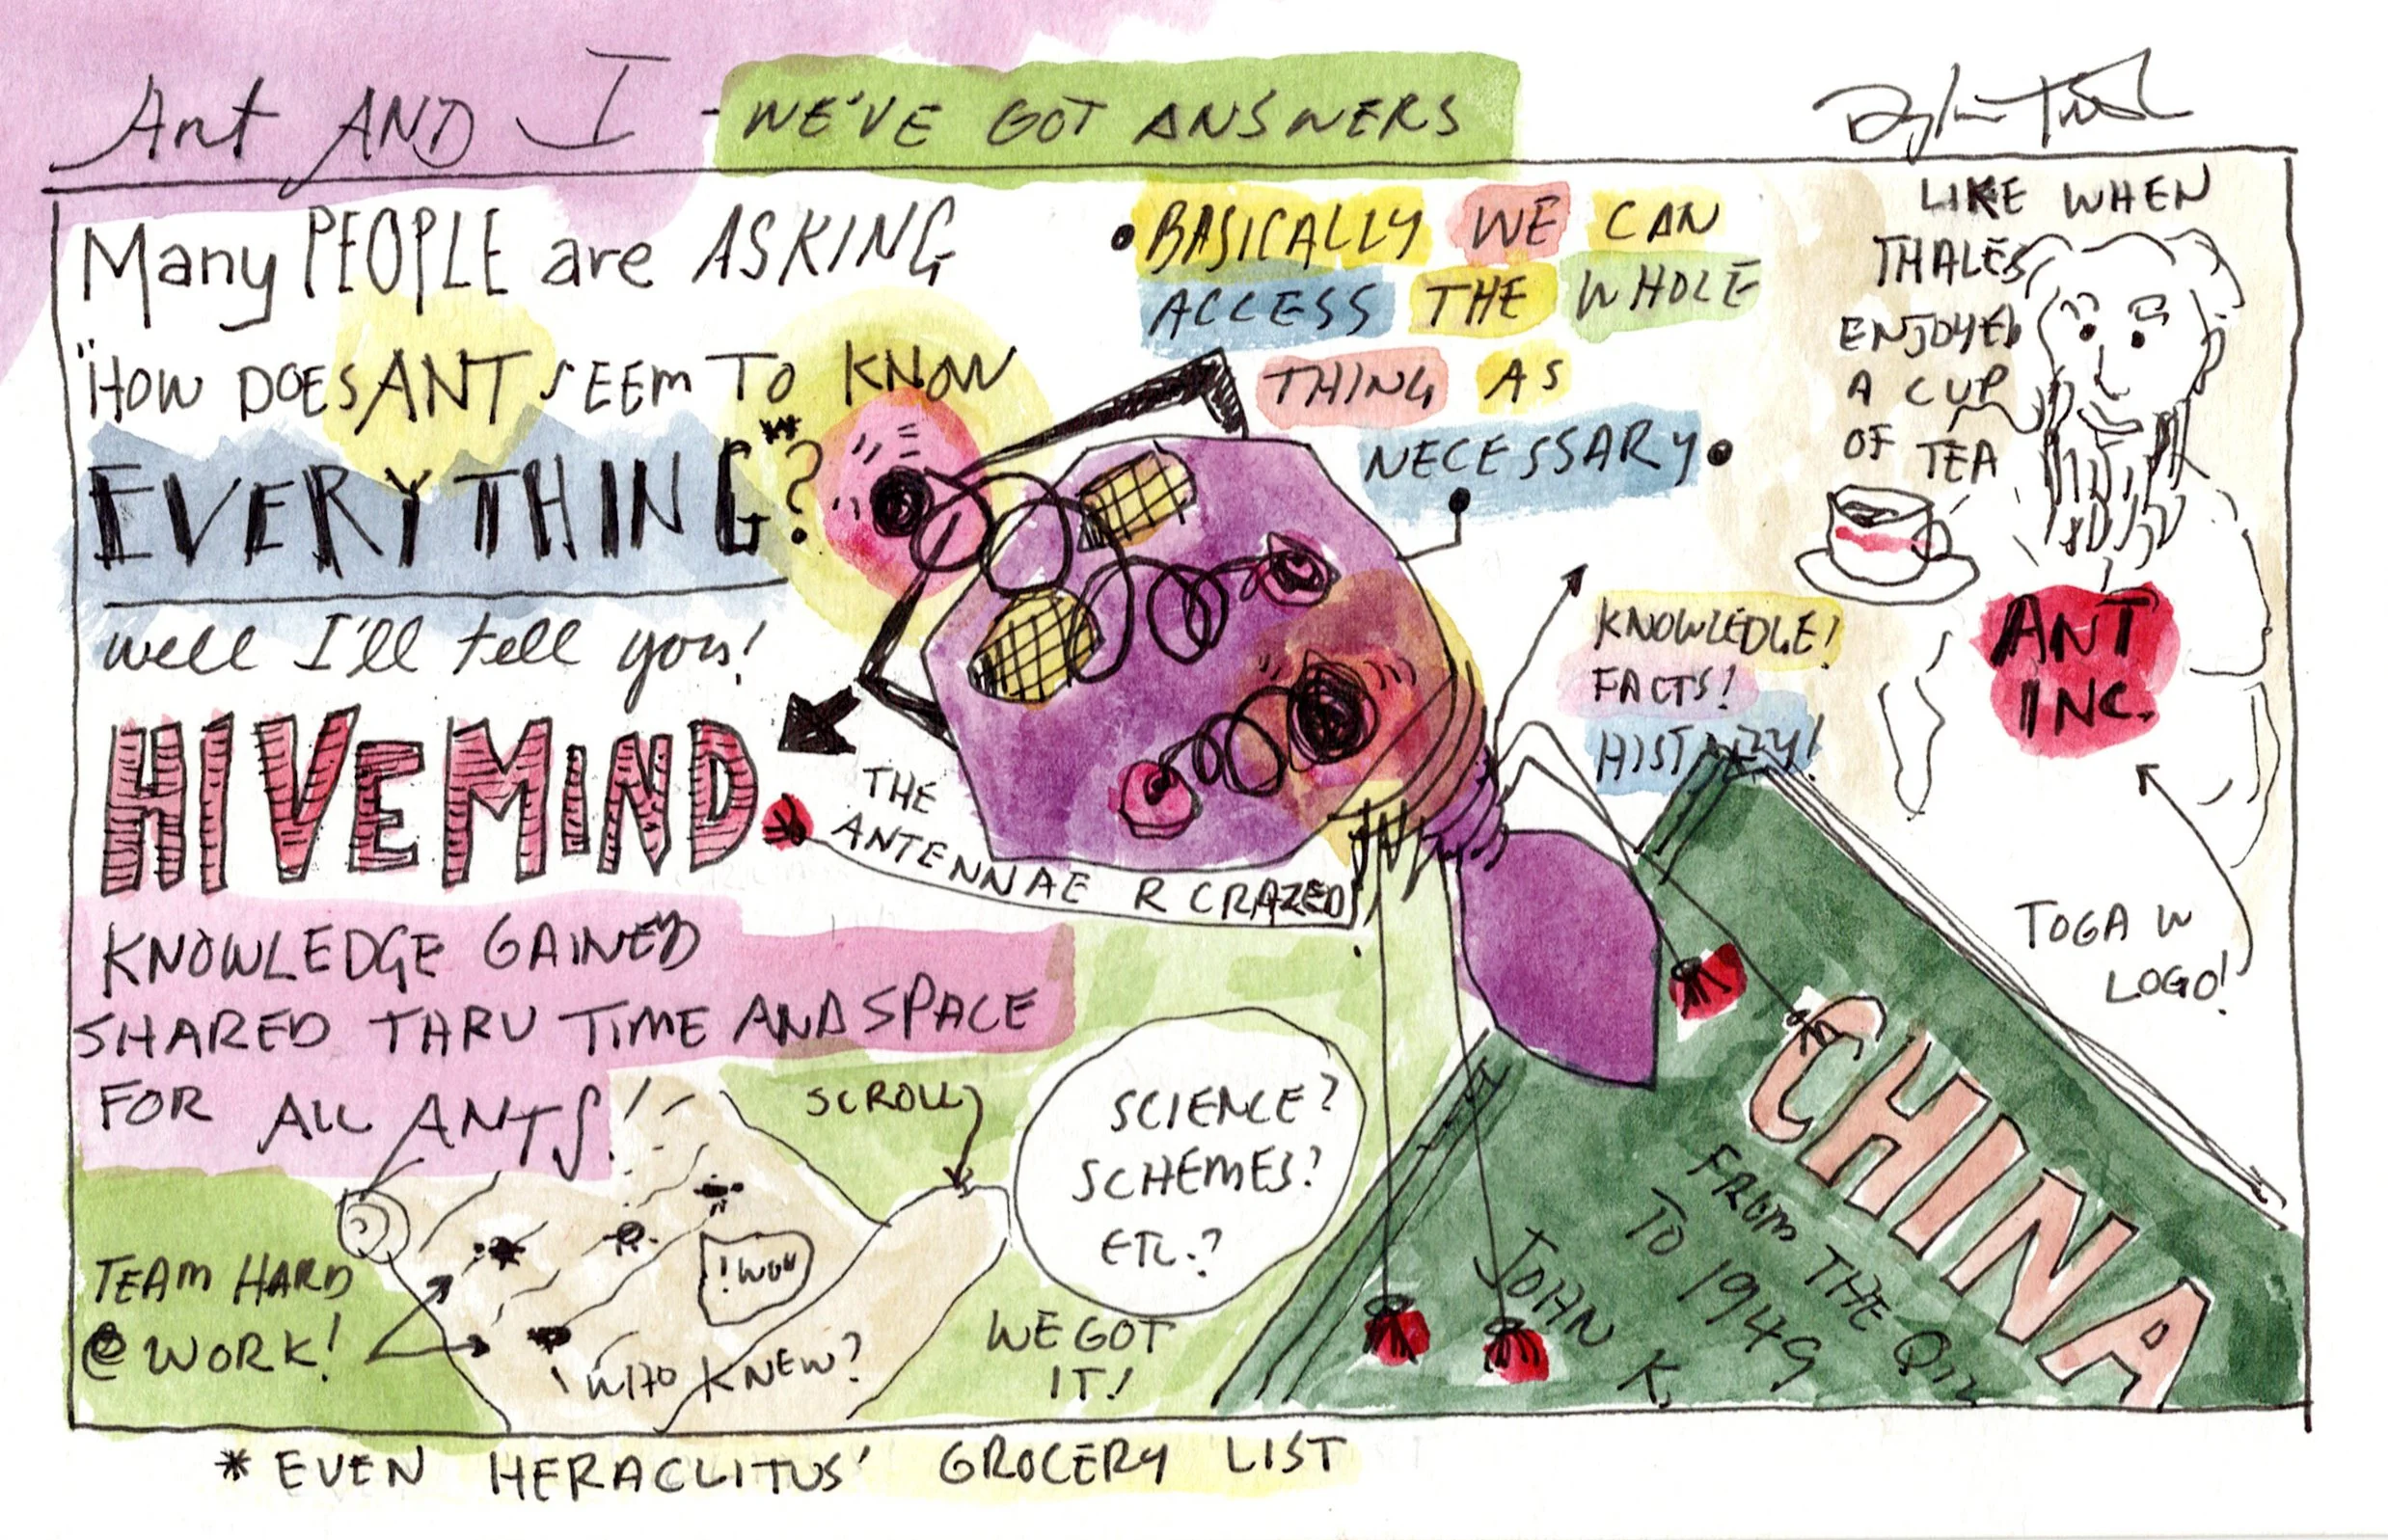 Ant AND I - WE'VE GOT ANSWERS
Many PEOPLE are ASKING
"HOW DOES ANT SEEM TO KNOW
EVERYTHING*"?
well I'll tell you!
HIVEMIND
KNOWLEDGE GAINED
SHARED THRU TIME AND SPACE
FOR ALL ANTS!
• BASICALLY WE CAN
ACCESS THE WHOLE
THING AS
NECESSARY •
THE
ANTENNAE R CRAZED
LIKE WHEN
THALES
ENJOYED
A CUP
OF TEA
KNOWLEDGE!
FACTS!
HISTORY!
ANT
INC.
TOGA W
LOGO!
SCROLL
TEAM HARD
@ WORK!
! WOW
WHO KNEW?
SCIENCE?
SCHEMES?
ETC.?
WE GOT
IT!
CHINA
FROM THE
TO 1949
JOHN K.
* EVEN HERACLITUS' GROCERY LIST